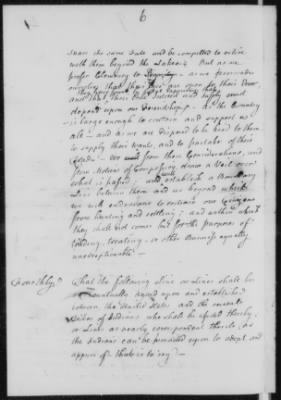 6
share the same fate and be compelled to retire
with them beyond the Lakes; But as we
prefer Clemency to — as we persuade
ourselves that their Eyes are open to their error
and that their true Interest and safety must
depend upon our Friendship; As the Country
is large enough to contain and support us
all — and as we are disposed to be kind to them
to supply their wants, and to partake of their
Trade — We from these Considerations, and
from Motives of Compassion, draw a Veil over
what is passed and will establish a Boundary
Line between them and us beyond which
we will endeavour to restrain our Citizens
from hunting and settling; and within which
they shall not come but for the purposes of
trading, treating, or other Business equally
unexceptionable.
Fourthly; That the following Line or Lines shall be
eventually agreed upon and established
between the United States and the several
Tribes of Indians who shall be affected thereby,
or Line as nearly correspondent thereto, as
the Indians can be prevailed upon to adopt and
approve of; that is to say;